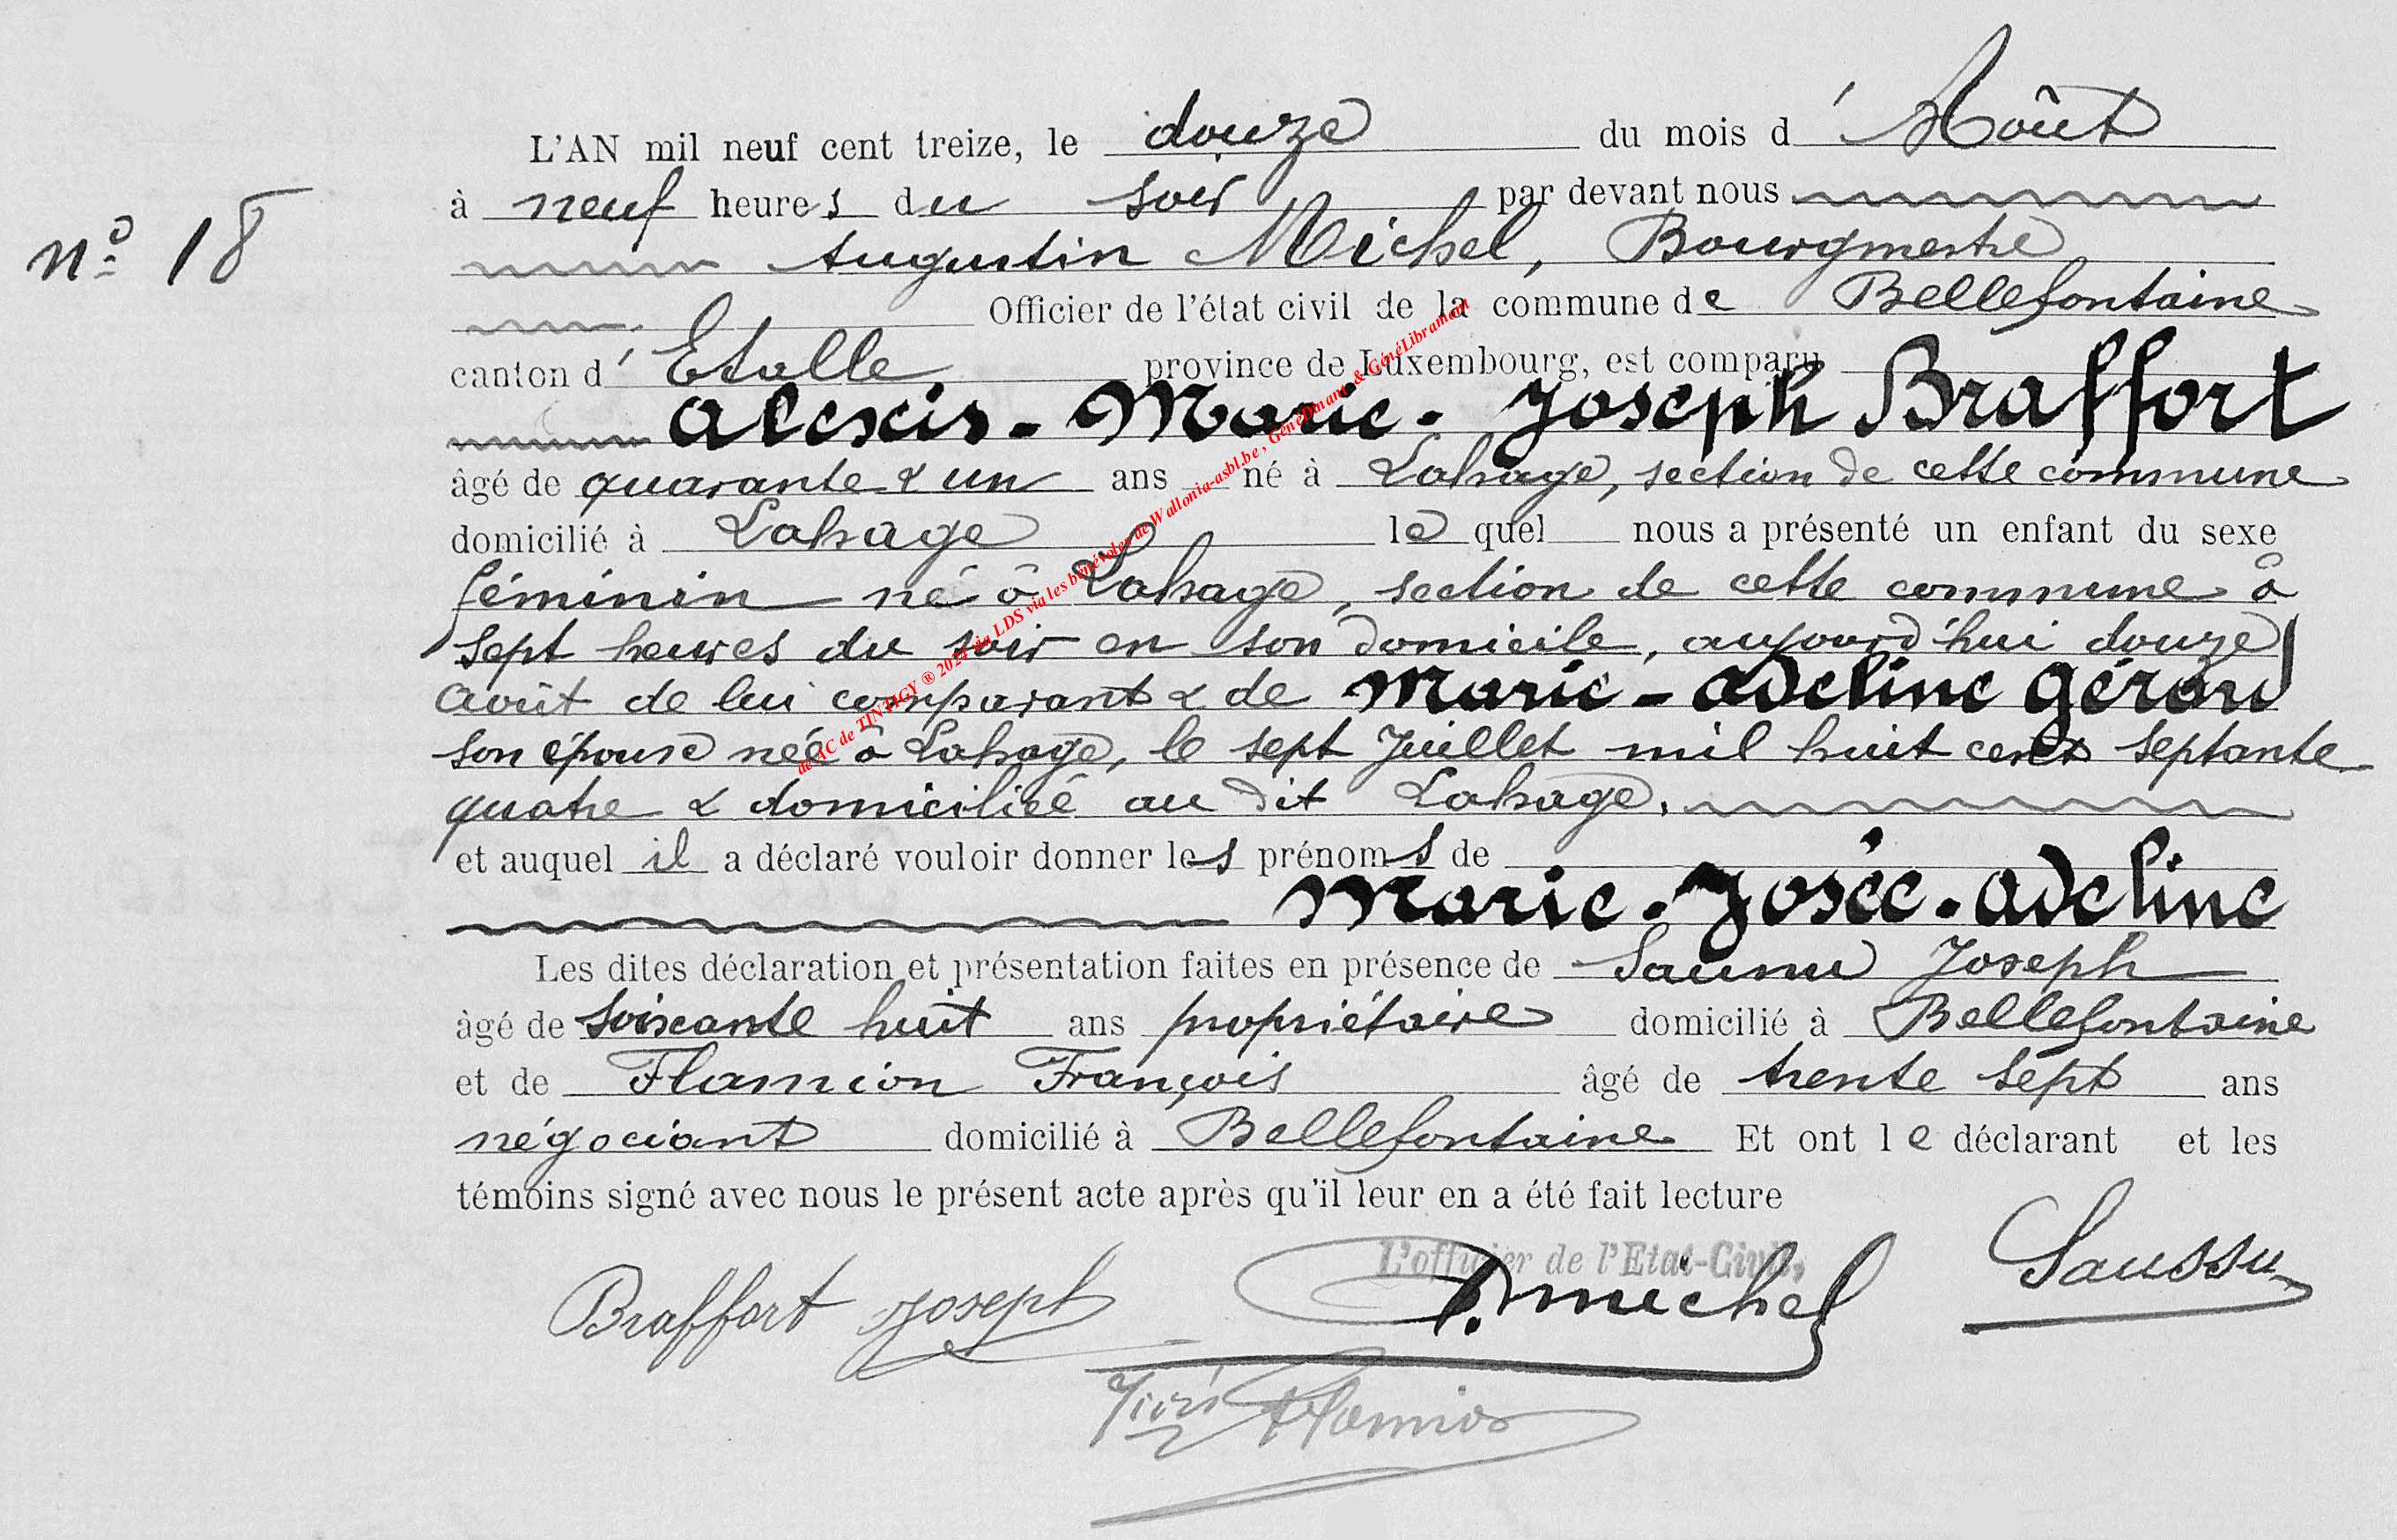 L'AN mil neuf cent treize, le douze du mois d'Août
n° 18
à neuf heures du soir par devant nous
Augustin Michel, Bourgmestre
Officier de l'état civil de la commune de Bellefontaine
canton d'Etalle province de Luxembourg, est comparu
Alexis-Marie-Joseph Braffort
âgé de quarante & un ans né à Lahage, section de cette commune
domicilié à Lahage lequel nous a présenté un enfant du sexe
féminin né à Lahage, section de cette commune à
sept heures du soir en son domicile, aujourd'hui douze
août de lui comparant & de Marie-Adeline Gérou
son épouse née à Lahage, le sept Juillet mil huit cent septante
quatre & domiciliée au dit Lahage.
et auquel il a déclaré vouloir donner les prénoms de
Marie-Josée-Adeline
Les dites déclaration et présentation faites en présence de Saussu Joseph
âgé de soixante huit ans propriétaire domicilié à Bellefontaine
et de Flamion François âgé de trente sept ans
négociant domicilié à Bellefontaine Et ont le déclarant et les
témoins signé avec nous le présent acte après qu'il leur en a été fait lecture
L'officier de l'Etat-Civil,
Braffort Joseph Michel Saussu
Flamion
de AC de TINTIGY ® 2024 via LDS via les bénévoles de Wallonia-asbl.be, GénéDinant & GénéLibramont